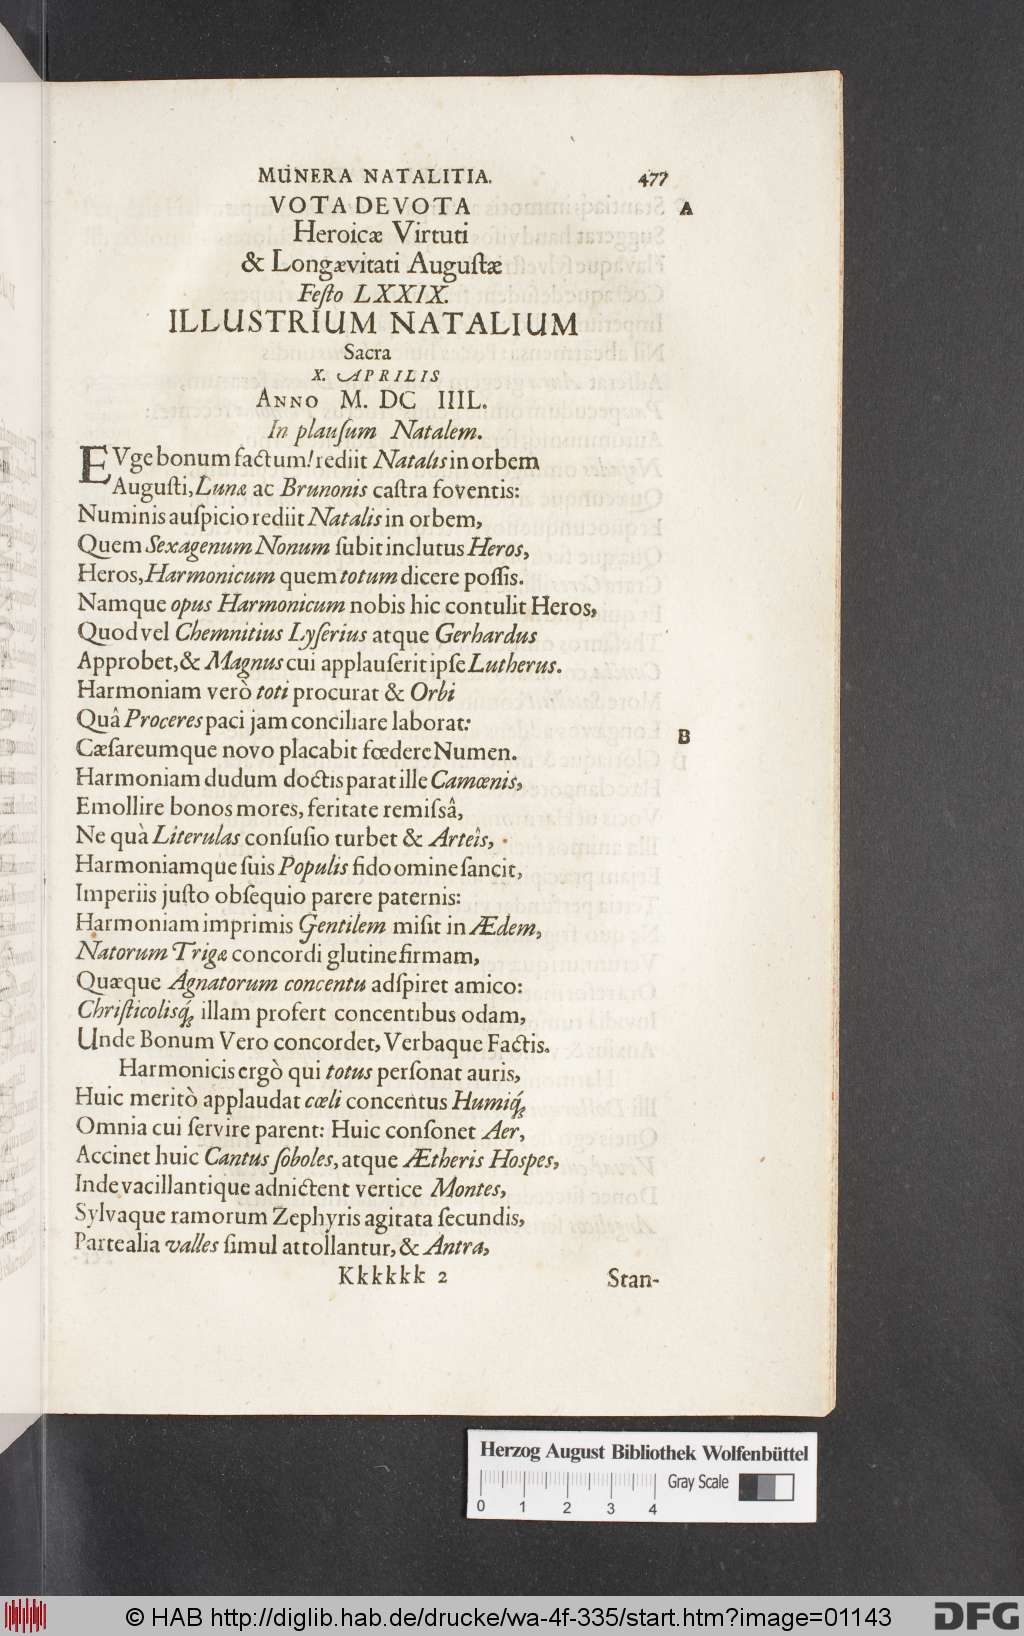 MUNERA NATALITIA. 477
VOTA DEVOTA A
Heroicæ Virtuti
& Longævitati Auguſtæ
Feſto LXXIX.
ILLUSTRIUM NATALIUM
Sacra
X. APRILIS
ANNO M. DC IIIL.
In plauſum Natalem.
EVge bonum factum! rediit Natalis in orbem
Auguſti, Lunæ ac Brunonis caſtra foventis:
Numinis auſpicio rediit Natalis in orbem,
Quem Sexagenum Nonum ſubit inclutus Heros,
Heros, Harmonicum quem totum dicere poſſis.
Namque opus Harmonicum nobis hic contulit Heros,
Quod vel Chemnitius Lyſerius atque Gerhardus
Approbet, & Magnus cui applauſerit ipſe Lutherus.
Harmoniam verò toti procurat & Orbi
Quâ Proceres paci jam conciliare laborat:
B
Cæſareumque novo placabit fœdere Numen.
Harmoniam dudum doctis parat ille Camœnis,
Emollire bonos mores, feritate remiſsâ,
Ne quà Literulas confuſio turbet & Arteîs,
Harmoniamque ſuis Populis fido omine ſancit,
Imperiis juſto obſequio parere paternis:
Harmoniam imprimis Gentilem miſit in Ædem,
Natorum Trigæ concordi glutine firmam,
Quæque Agnatorum concentu adſpiret amico:
Chriſticolisq́; illam profert concentibus odam,
Unde Bonum Vero concordet, Verbaque Factis.
Harmonicis ergò qui totus perſonat auris,
Huic meritò applaudat cœli concentus Humiq́;
Omnia cui ſervire parent: Huic conſonet Aer,
Accinet huic Cantus ſoboles, atque Ætheris Hospes,
Inde vacillantique adnictent vertice Montes,
Sylvaque ramorum Zephyris agitata ſecundis,
Parte alia valles ſimul attollantur, & Antra,
Kkkkkk 2 Stan-
Herzog August Bibliothek Wolfenbüttel
Gray Scale
0 1 2 3 4
© HAB http://diglib.hab.de/drucke/wa-4f-335/start.htm?image=01143
DFG